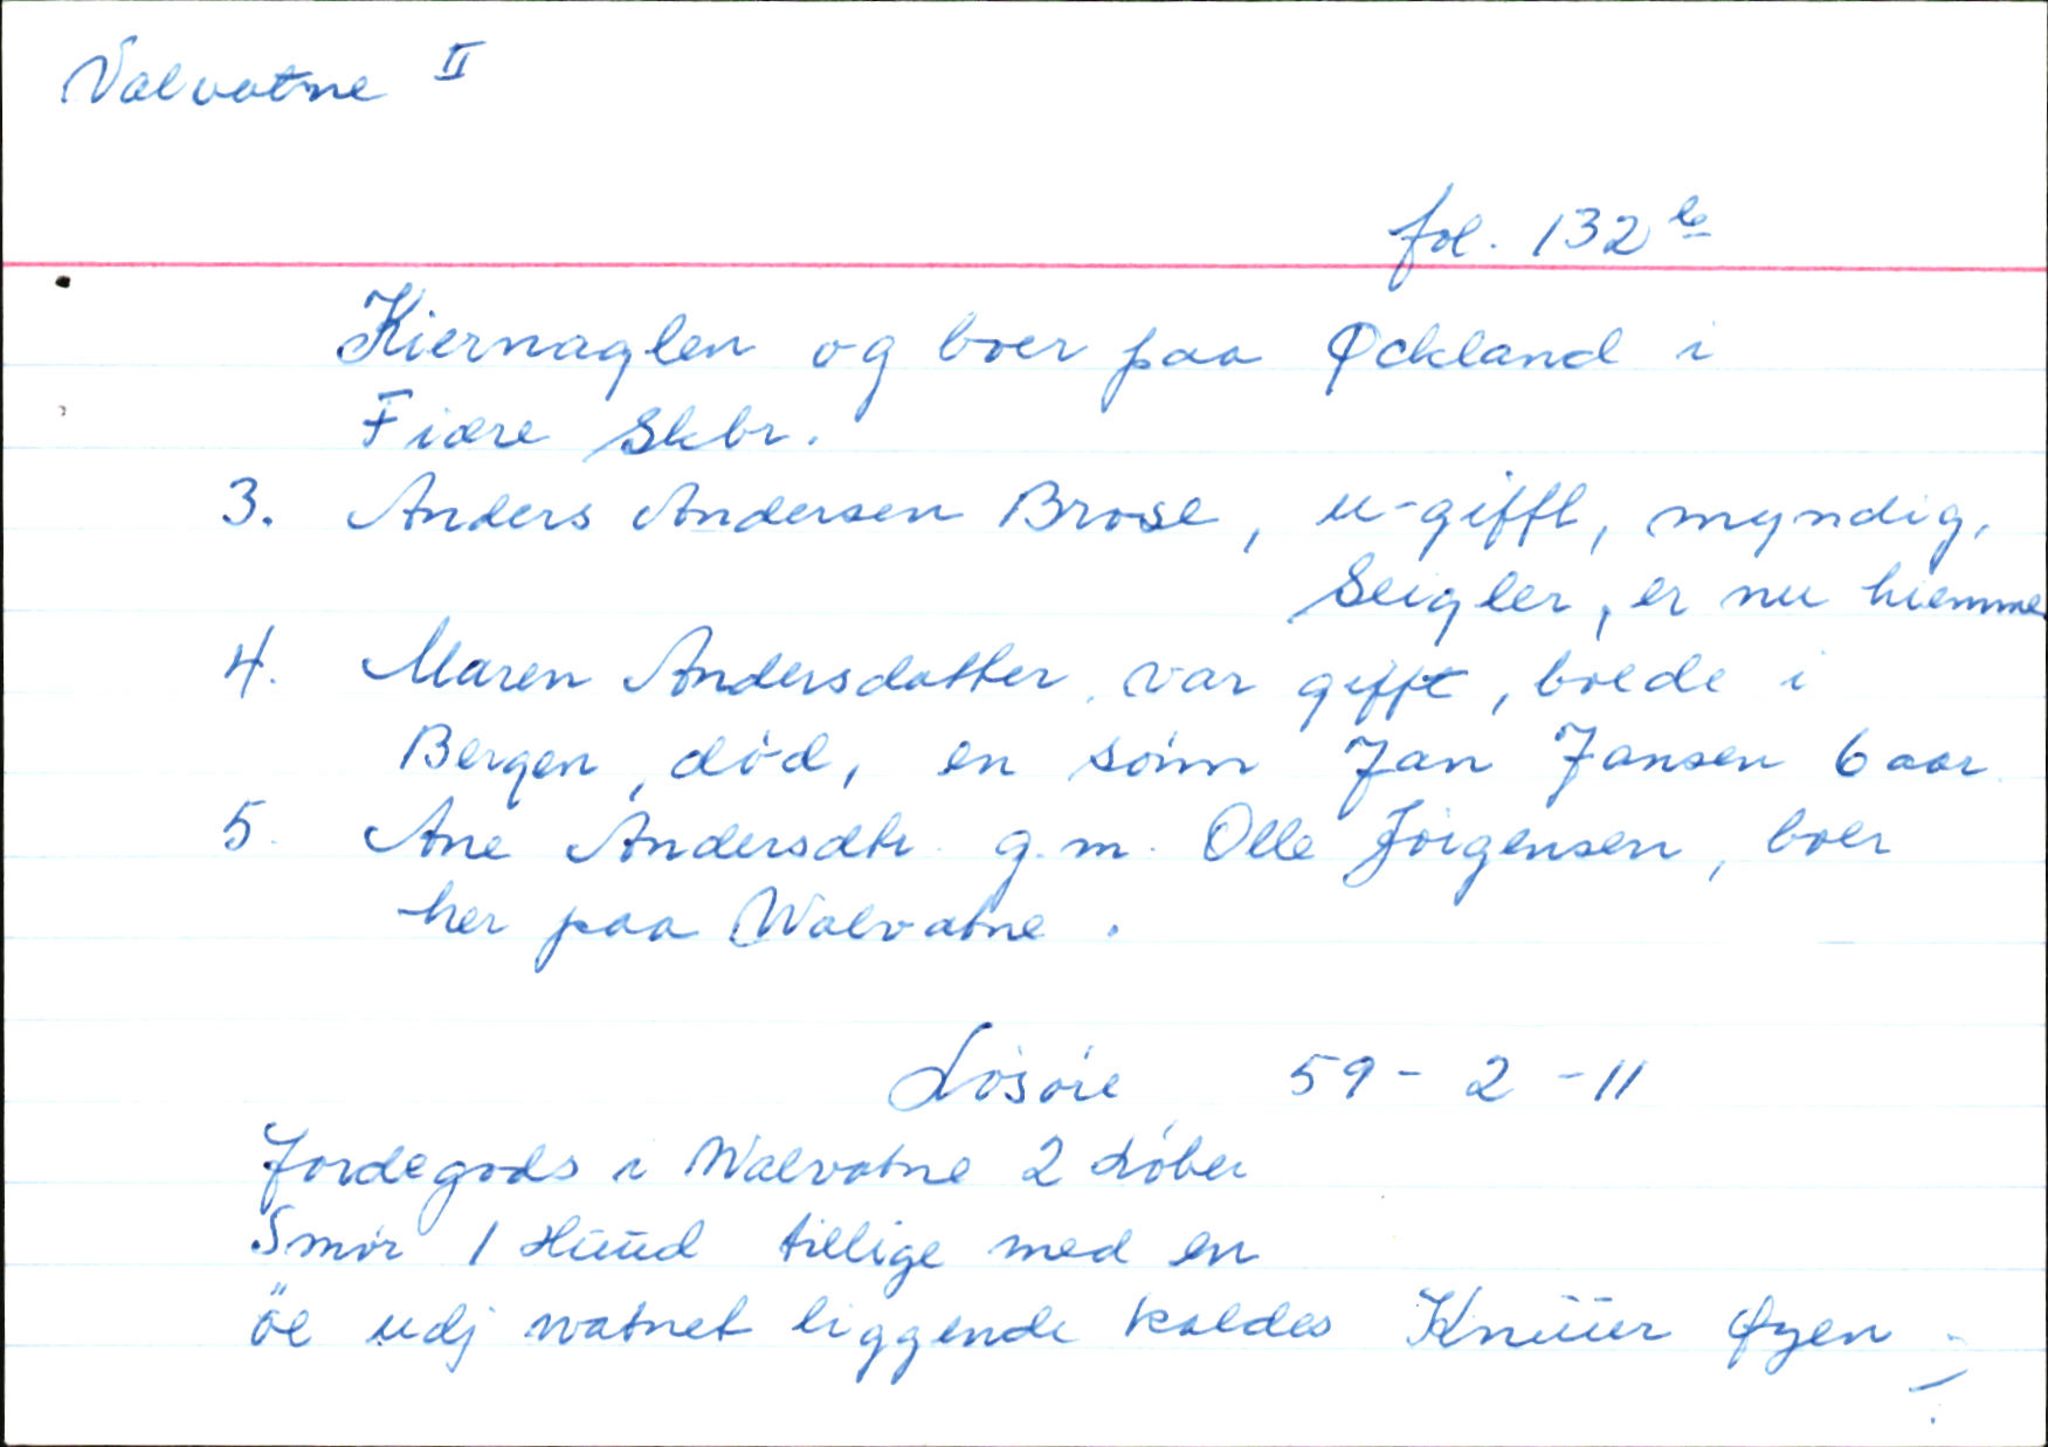 Valvatne II
fol. 132 b
Kiernaglen og boer paa Øckland i
Fiære Skbr.
3. Anders Andersen Brose, u-gifft, myndig,
Seigler, er nu hiemme
4. Maren Andersdatter, var gifft, boede i
Bergen, död, en sönn Jan Jansen 6 aar
5. Ane Andersdtr. g.m. Olle Jörgensen, boer
her paa Walvatne.
Lösöre 59 - 2 - 11
Jordegods i Walvatne 2 Löber
Smör 1 Huud tillige med en
öe udj watnet liggende kaldes Knüür Øyen